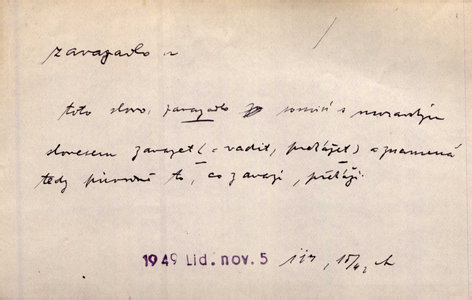 zavazadlo n
toto slovo, zavazadlo souvisí s moravským
slovesem zavazet (= vadit, překážet) a znamená
tedy původně to, co zavazí, překáží.
1949 Lid. nov. 5